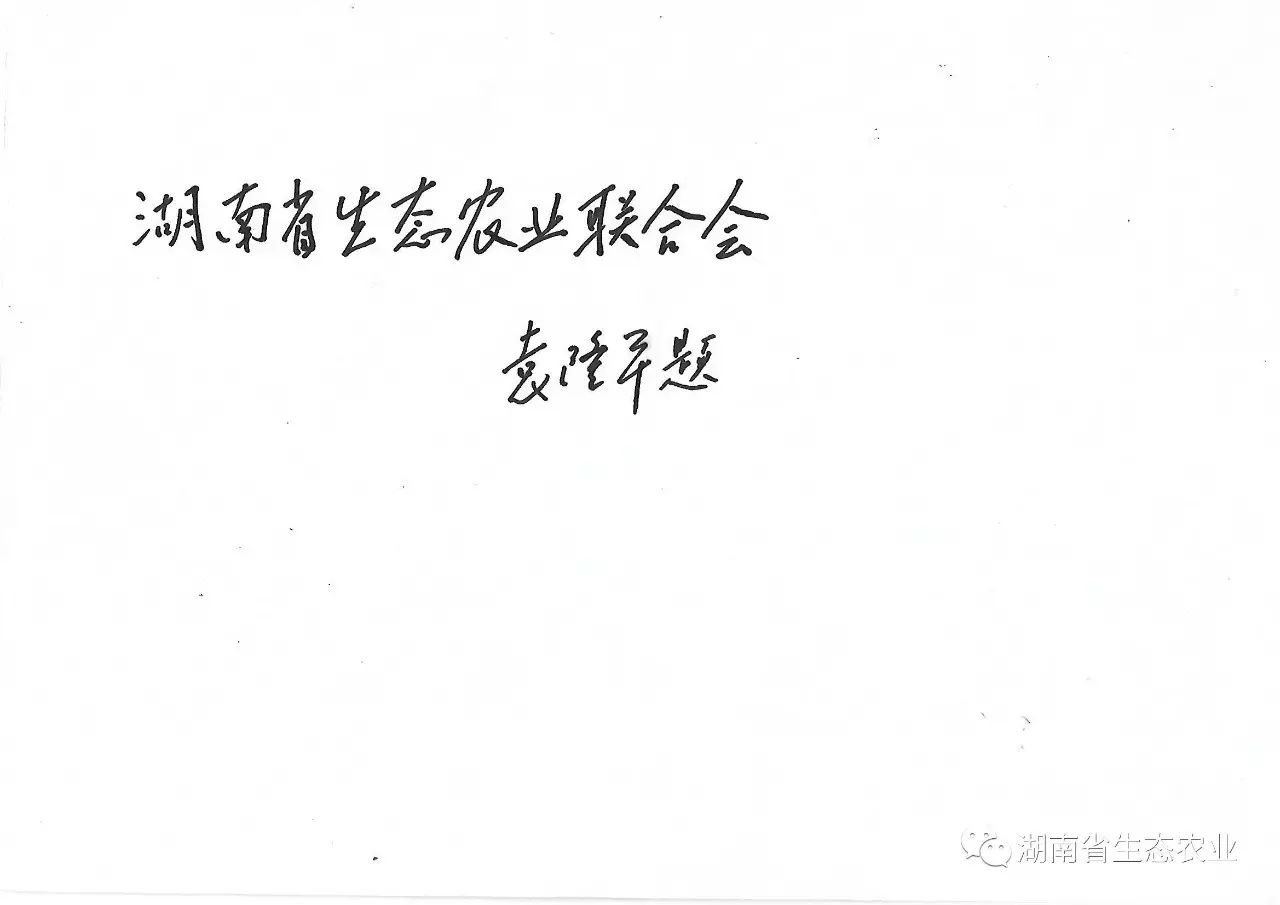 湖南省生态农业联合会
袁隆平题
湖南省生态农业